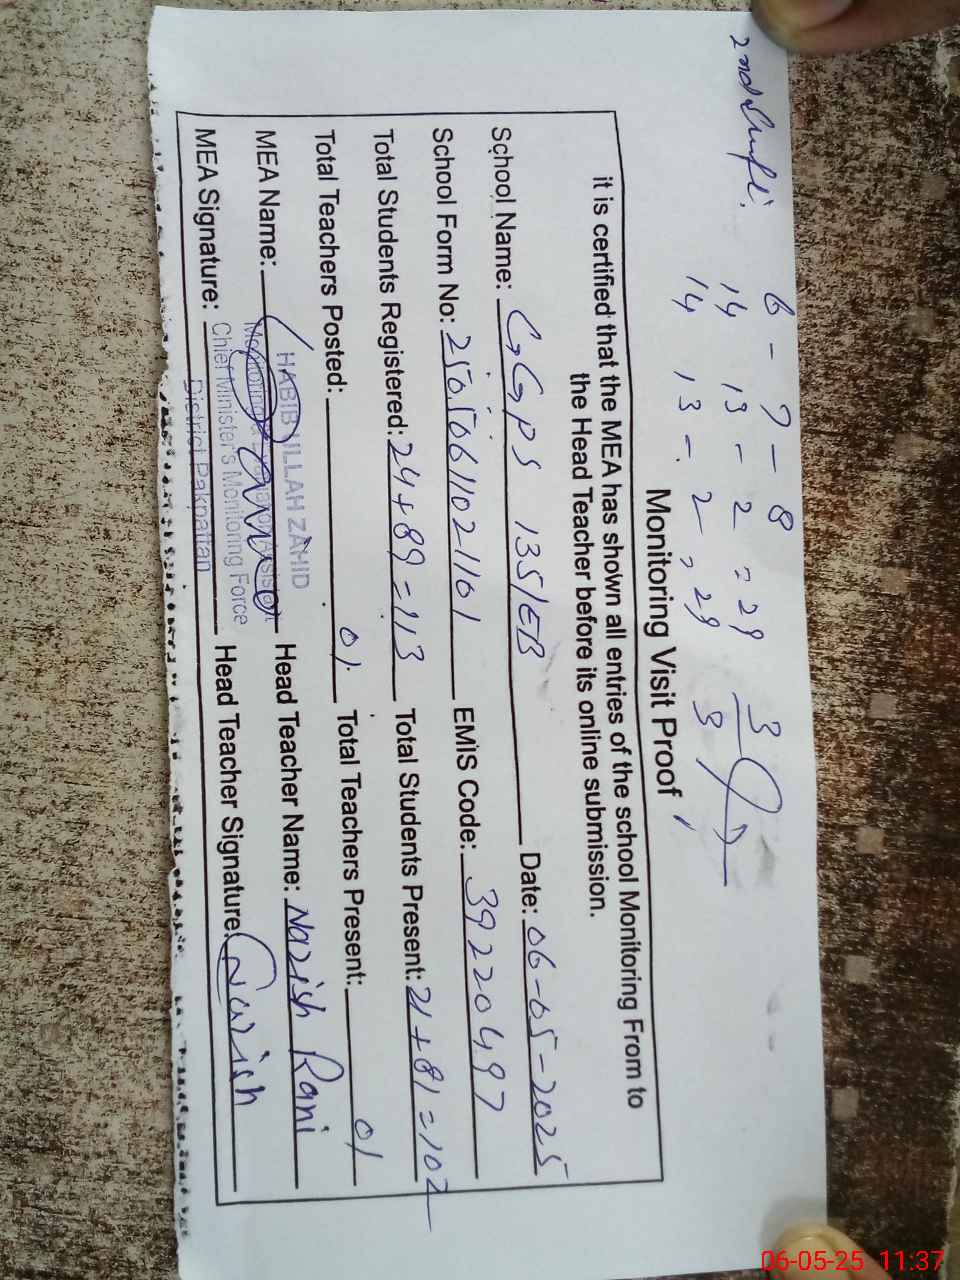 6 - 7 - 8
14 13 - 2 = 29 3
14 13 - 2, 29 3
Monitoring Visit Proof
it is certified that the MEA has shown all entries of the school Monitoring From to
the Head Teacher before its online submission.
School Name: GGPS 135/EB Date: 06-05-2025
School Form No: EMIS Code: 39220497
Total Students Registered: 24+89=113 Total Students Present: 21+81=102
Total Teachers Posted: 01 Total Teachers Present: 01
MEA Name: HABIB ULLAH ZAHID Head Teacher Name: Nazish Rani
Monitoring
Chief Minister's Monitoring Force
District Pakpattan
MEA Signature: Head Teacher Signature: Nazish
06-05-25 11:37